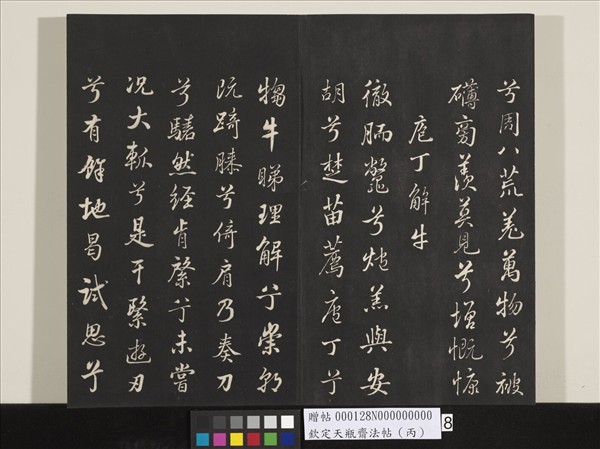 兮周八荒羌萬物兮被
礴羨莫見兮增慨慷
庖丁解牛
徹胹鼈兮炮羔與安
胡兮楚苗薦庖丁兮
犓牛睇理解兮崇朝
既踦膝兮倚肩乃奏刀
兮騞然經肯綮兮未嘗
况大軱兮是干繄遊刃
兮有餘地曷試思兮
贈帖 000128N000000000
欽定天瓶齋法帖（丙）
8